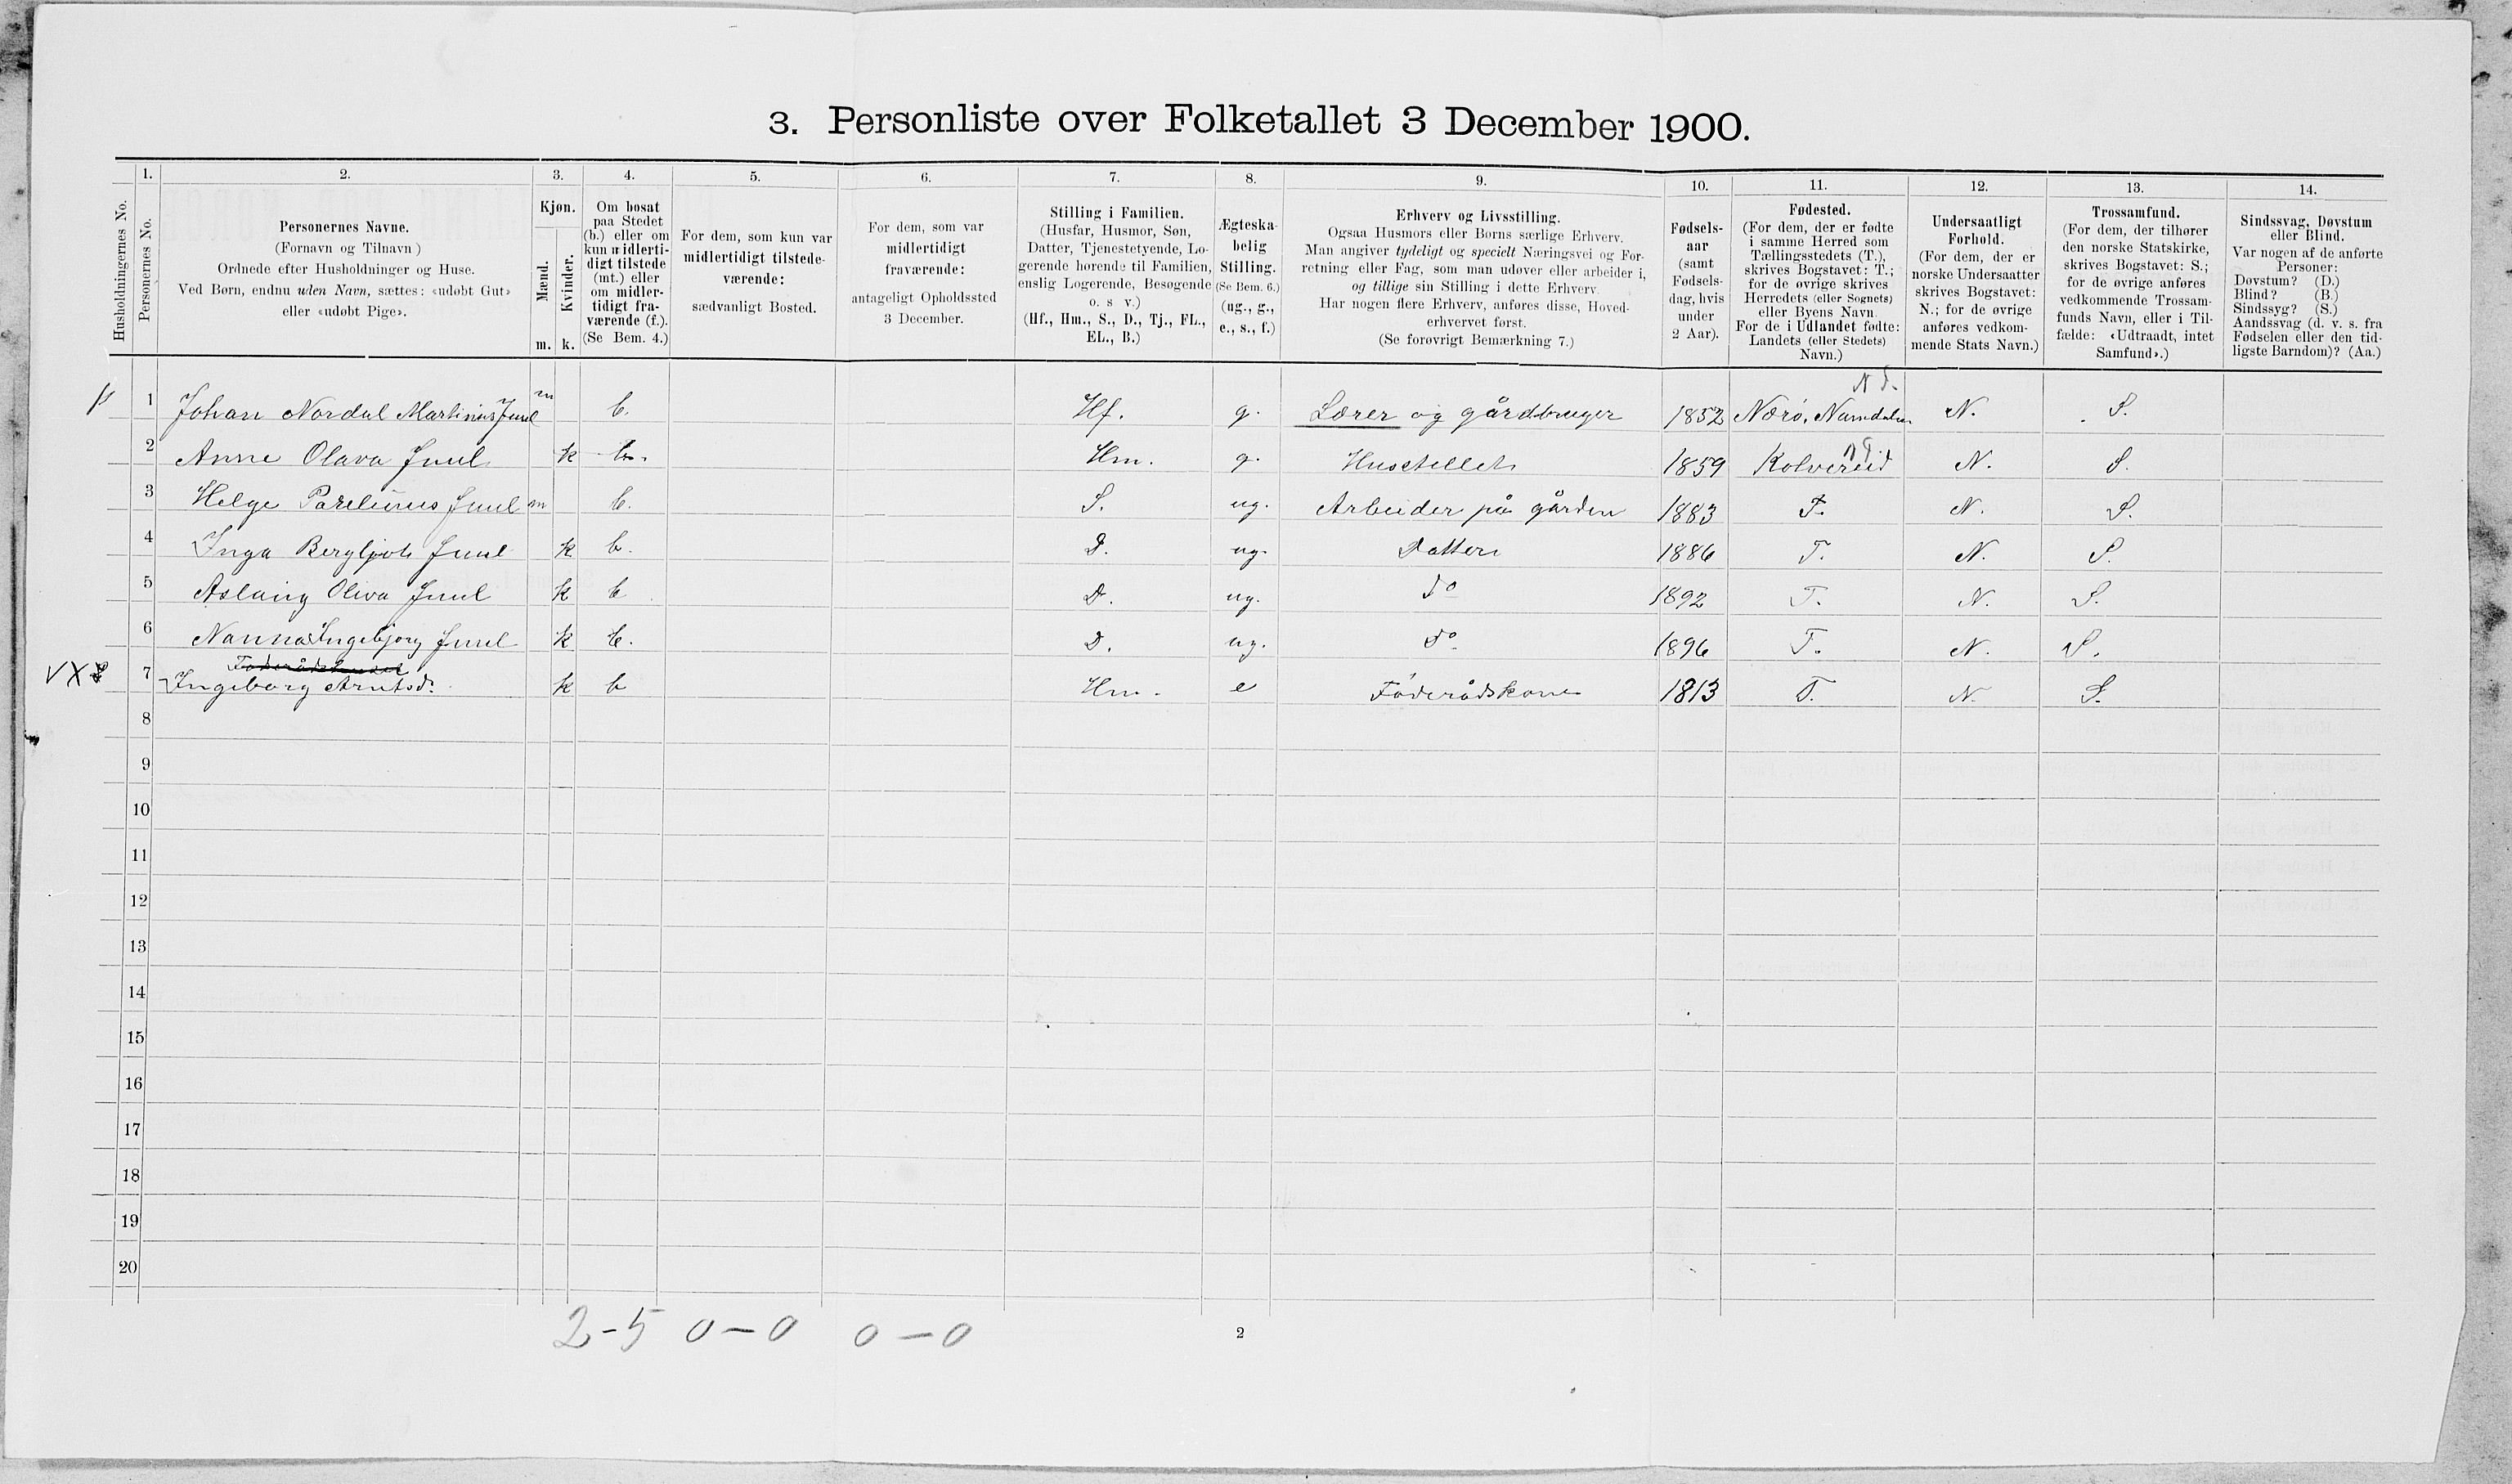 3. Personliste over Folketallet 3 December 1900.
Husholdningernes No.
1.
Personernes No.
2.
Personernes Navne.
(Fornavn og Tilnavn)
Ordnede efter Husholdninger og Huse.
Ved Børn, endnu uden Navn, sættes: «udøbt Gut»
eller «udøbt Pige».
3.
Kjøn.
Mænd.
Kvinder.
m. k.
4.
Om bosat
paa Stedet
(b.) eller om
kun midlerti-
digt tilstede
(mt.) eller
om midler-
tidigt fra-
værende (f.).
(Se Bem. 4.)
5.
For dem, som kun var
midlertidigt tilstede-
værende:
sædvanligt Bosted.
6.
For dem, som var
midlertidigt
fraværende:
antageligt Opholdssted
3 December.
7.
Stilling i Familien.
(Husfar, Husmor, Søn,
Datter, Tjenestetyende, Lo-
gerende hørende til Familien,
enslig Logerende, Besøgende
o. s v.)
(Hf., Hm., S., D., Tj., FL.,
EL., B.)
8.
Ægteska-
belig
Stilling.
(Se Bem. 6.)
(ug., g.,
e., s., f.)
9.
Erhverv og Livsstilling.
Ogsaa Husmors eller Børns særlige Erhverv.
Man angiver tydeligt og specielt Næringsvei og For-
retning eller Fag, som man udøver eller arbeider i,
og tillige sin Stilling i dette Erhverv.
Har nogen flere Erhverv, anføres disse, Hoved-
erhvervet først.
(Se forøvrigt Bemærkning 7.)
10.
Fødsels-
aar
(samt
Fødsels-
dag, hvis
under
2 Aar).
11.
Fødested.
(For dem, der er fødte
i samme Herred som
Tællingsstedets (T.),
skrives Bogstavet: T.;
for de øvrige skrives
Herredets (eller Sognets)
eller Byens Navn.
For de i Udlandet fødte:
Landets (eller Stedets)
Navn.)
12.
Undersaatligt
Forhold.
(For dem, der er
norske Undersaatter
skrives Bogstavet:
N.; for de øvrige
anføres vedkom-
mende Stats Navn.)
13.
Trossamfund.
(For dem, der tilhører
den norske Statskirke,
skrives Bogstavet: S.;
for de øvrige anføres
vedkommende Trossam-
funds Navn, eller i Til-
fælde: «Udtraadt, intet
Samfund».)
14.
Sindssvag, Døvstum
eller Blind.
Var nogen af de anførte
Personer:
Døvstum? (D.)
Blind? (B.)
Sindssyg? (S.)
Aandssvag (d. v. s. fra
Fødselen eller den tid-
ligste Barndom)? (Aa.)
1 Johan Nordal Martinus Juul m b. Hf. g. Lærer og gårdbruger 1852 Nærö, Namdalen N. S.
2 Anne Olava Juul k b. Hm. g. Husstellet 1859 Kolvereid N. S.
3 Helge Parelius Juul m b. S. ug. Arbeider på gården 1883 T. N. S.
4 Inga Bergljot Juul k b. D. ug. Datter 1886 T. N. S.
5 Aslaug Oliva Juul k b D. ug. Do 1892 T. N. S.
6 Nanna Ingebjorg Juul k b. D. ug. Do 1896 T. N. S.
Föderådshuset
VX 7 Ingeborg Arntsd. k b Hm. e Föderådskone 1813 T. N. S.
8
9
10
11
12
13
14
15
16
17
18
19
20
2-5 0-0 0-0
2